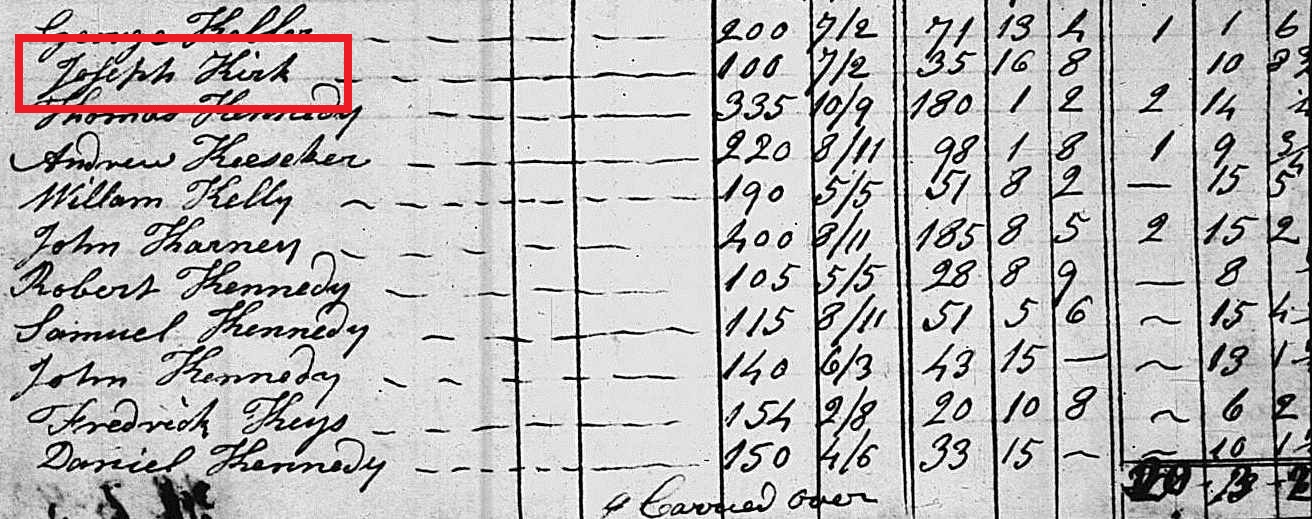 George Keller 200 7/2 71 13 4 1 1 6
Joseph Kirk 100 7/2 35 16 8 10
Thomas Kennedy 335 10/9 180 1 2 2 14
Andrew Keeseker 220 8/11 98 1 8 1 9
Willam Kelly 190 5/5 51 8 2 — 15 5
John Karney 400 8/11 185 8 5 2 15 2
Robert Kennedy 105 5/5 28 8 9 — 8
Samuel Kennedy 115 8/11 51 5 6 ~ 15 4
John Kennedy 140 6/3 43 15 — ~ 13 1
Fredrick Keys 154 2/8 20 10 8 ~ 6 2
Daniel Kennedy 150 4/6 33 15 ~ ~ 10 1
Carried over